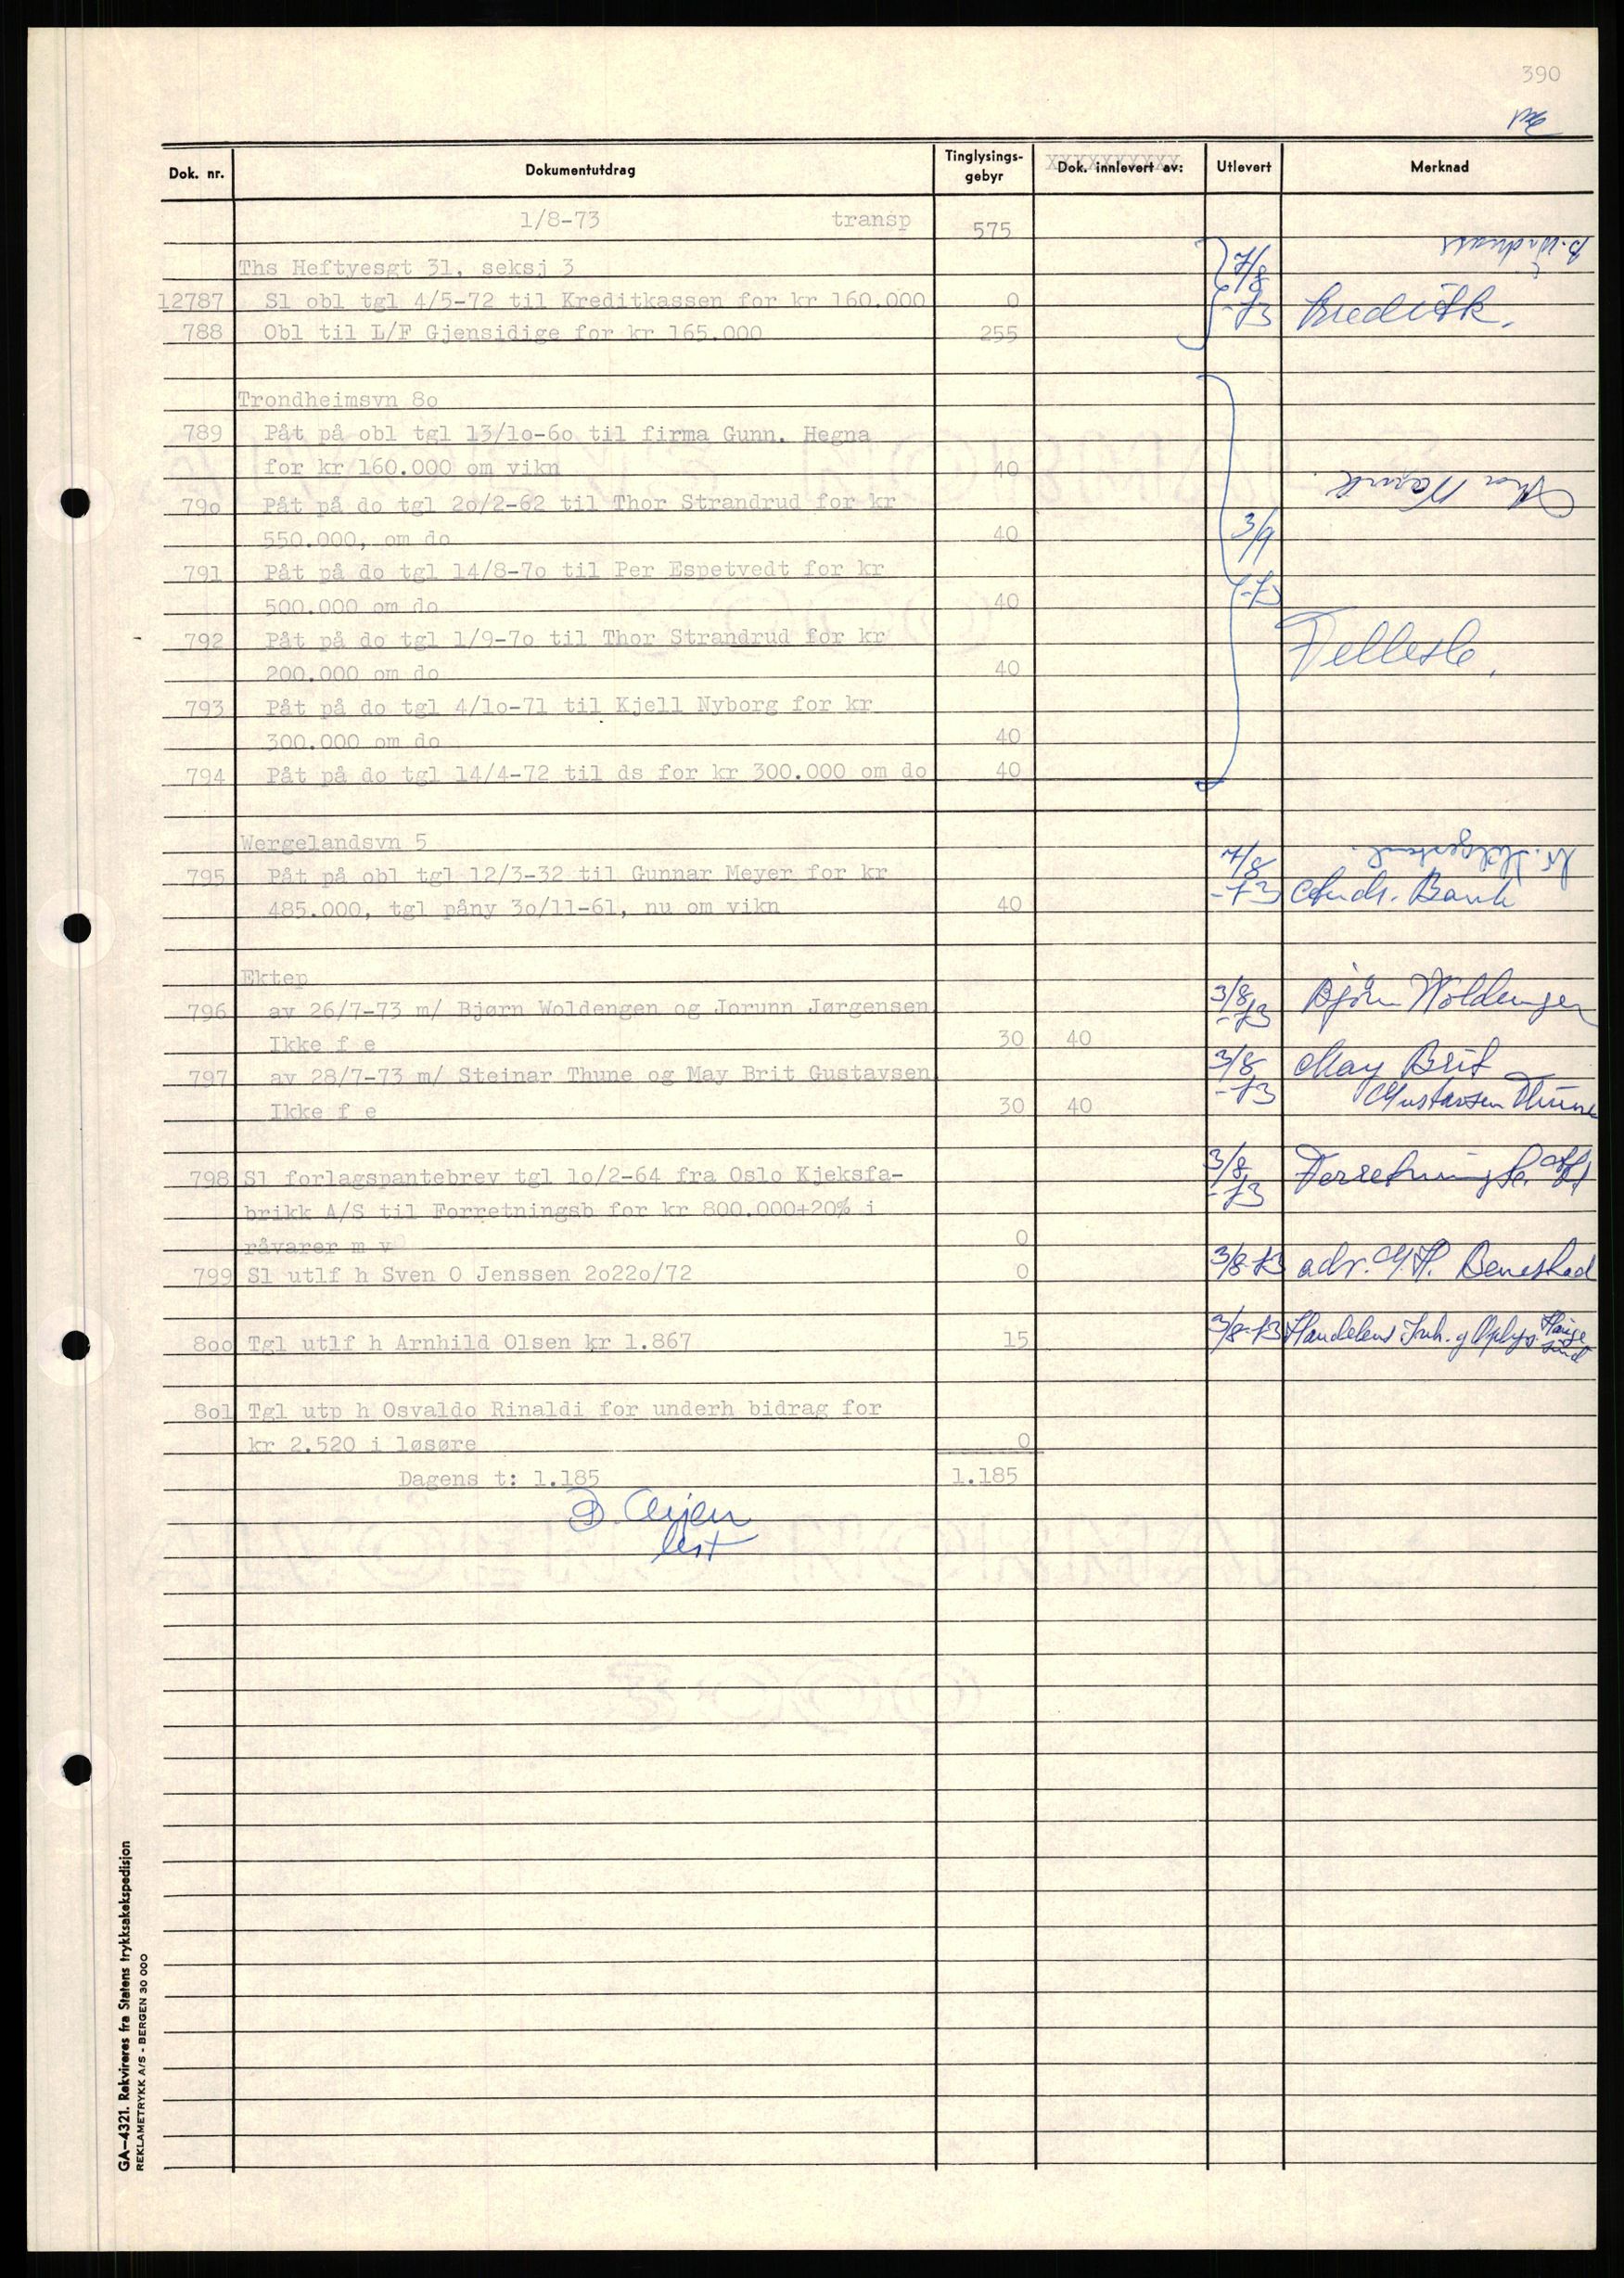 390
Dok. nr. Dokumentutdrag Tinglysings-gebyr Dok. innlevert av: Utlevert Merknad
XXXXXXXXXX
1/8-73 transp 575
Ths Heftyesgt 31, seksj 3 7/8
12787 Sl obl tgl 4/5-72 til Kreditkassen for kr 160.000 0 -73 Kreditk.
788 Obl til L/F Gjensidige for kr 165.000 255
Trondheimsvn 8o
789 Påt på obl tgl 13/1o-6o til firma Gunn. Hegna
for kr 160.000 om vikn 40
79o Påt på do tgl 2o/2-62 til Thor Strandrud for kr
550.000, om do 40 3/9
791 Påt på do tgl 14/8-7o til Per Espetvedt for kr
500.000 om do 40 -73
792 Påt på do tgl 1/9-7o til Thor Strandrud for kr
200.000 om do 40 Fellesb.
793 Påt på do tgl 4/1o-71 til Kjell Nyborg for kr
300.000 om do 40
794 Påt på do tgl 14/4-72 til ds for kr 300.000 om do 40
Wergelandsvn 5 7/8
795 Påt på obl tgl 12/3-32 til Gunnar Meyer for kr -73 Andr. Bank
485.000, tgl påny 3o/11-61, nu om vikn 40
Ektep
796 av 26/7-73 m/ Bjørn Woldengen og Jorunn Jørgensen 3/8 -73 Bjørn Woldengen
Ikke f e 30 40
797 av 28/7-73 m/ Steinar Thune og May Brit Gustavsen 3/8 -73 May Brit
Ikke f e 30 40 Gustavsen Thune
798 Sl forlagspantebrev tgl 1o/2-64 fra Oslo Kjeksfa- 3/8 -73 Forretningsb.
brikk A/S til Forretningsb for kr 800.000+20% i
råvarer m v 0
799 Sl utlf h Sven O Jenssen 2o22o/72 0 3/8-73 adv. Benestad
8oo Tgl utlf h Arnhild Olsen kr 1.867 15 3/8-73 Handelens Ink. Haugesund
8o1 Tgl utp h Osvaldo Rinaldi for underh bidrag for
kr 2.520 i løsøre 0
Dagens t: 1.185 1.185
lest
GA—4321. Rekvireres fra Statens trykksakekspedisjon
REKLAMETRYKK A/S - BERGEN 30 000